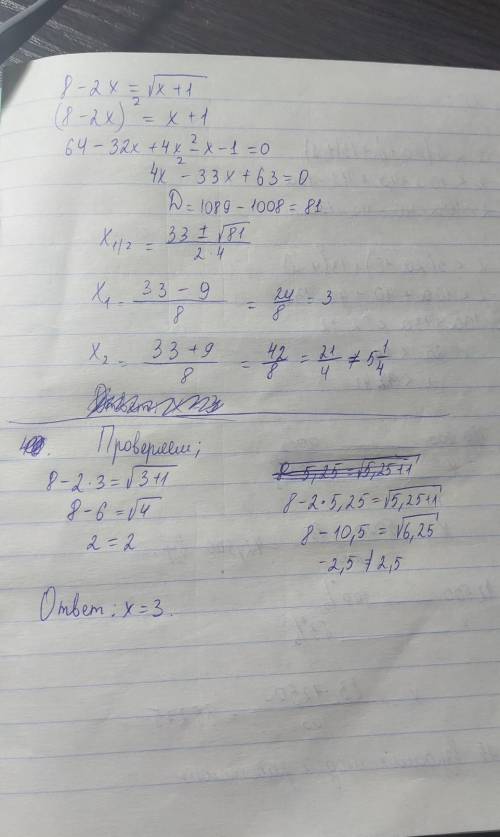 8 - 2x = √(x + 1)
(8 - 2x)² = x + 1
64 - 32x + 4x² - x - 1 = 0
4x² - 33x + 63 = 0
D = 1089 - 1008 = 81
x₁/₂ = (33 ± √81) / (2 · 4)
x₁ = (33 - 9) / 8 = 24/8 = 3
x₂ = (33 + 9) / 8 = 42/8 = 21/4 = 5 1/4
Проверяем;
8 - 2 · 3 = √(3+1)
8 - 6 = √4
2 = 2
8 - 5,25 = √(5,25+1)
8 - 2 · 5,25 = √(5,25+1)
8 - 10,5 = √6,25
-2,5 ≠ 2,5
Ответ: x = 3.